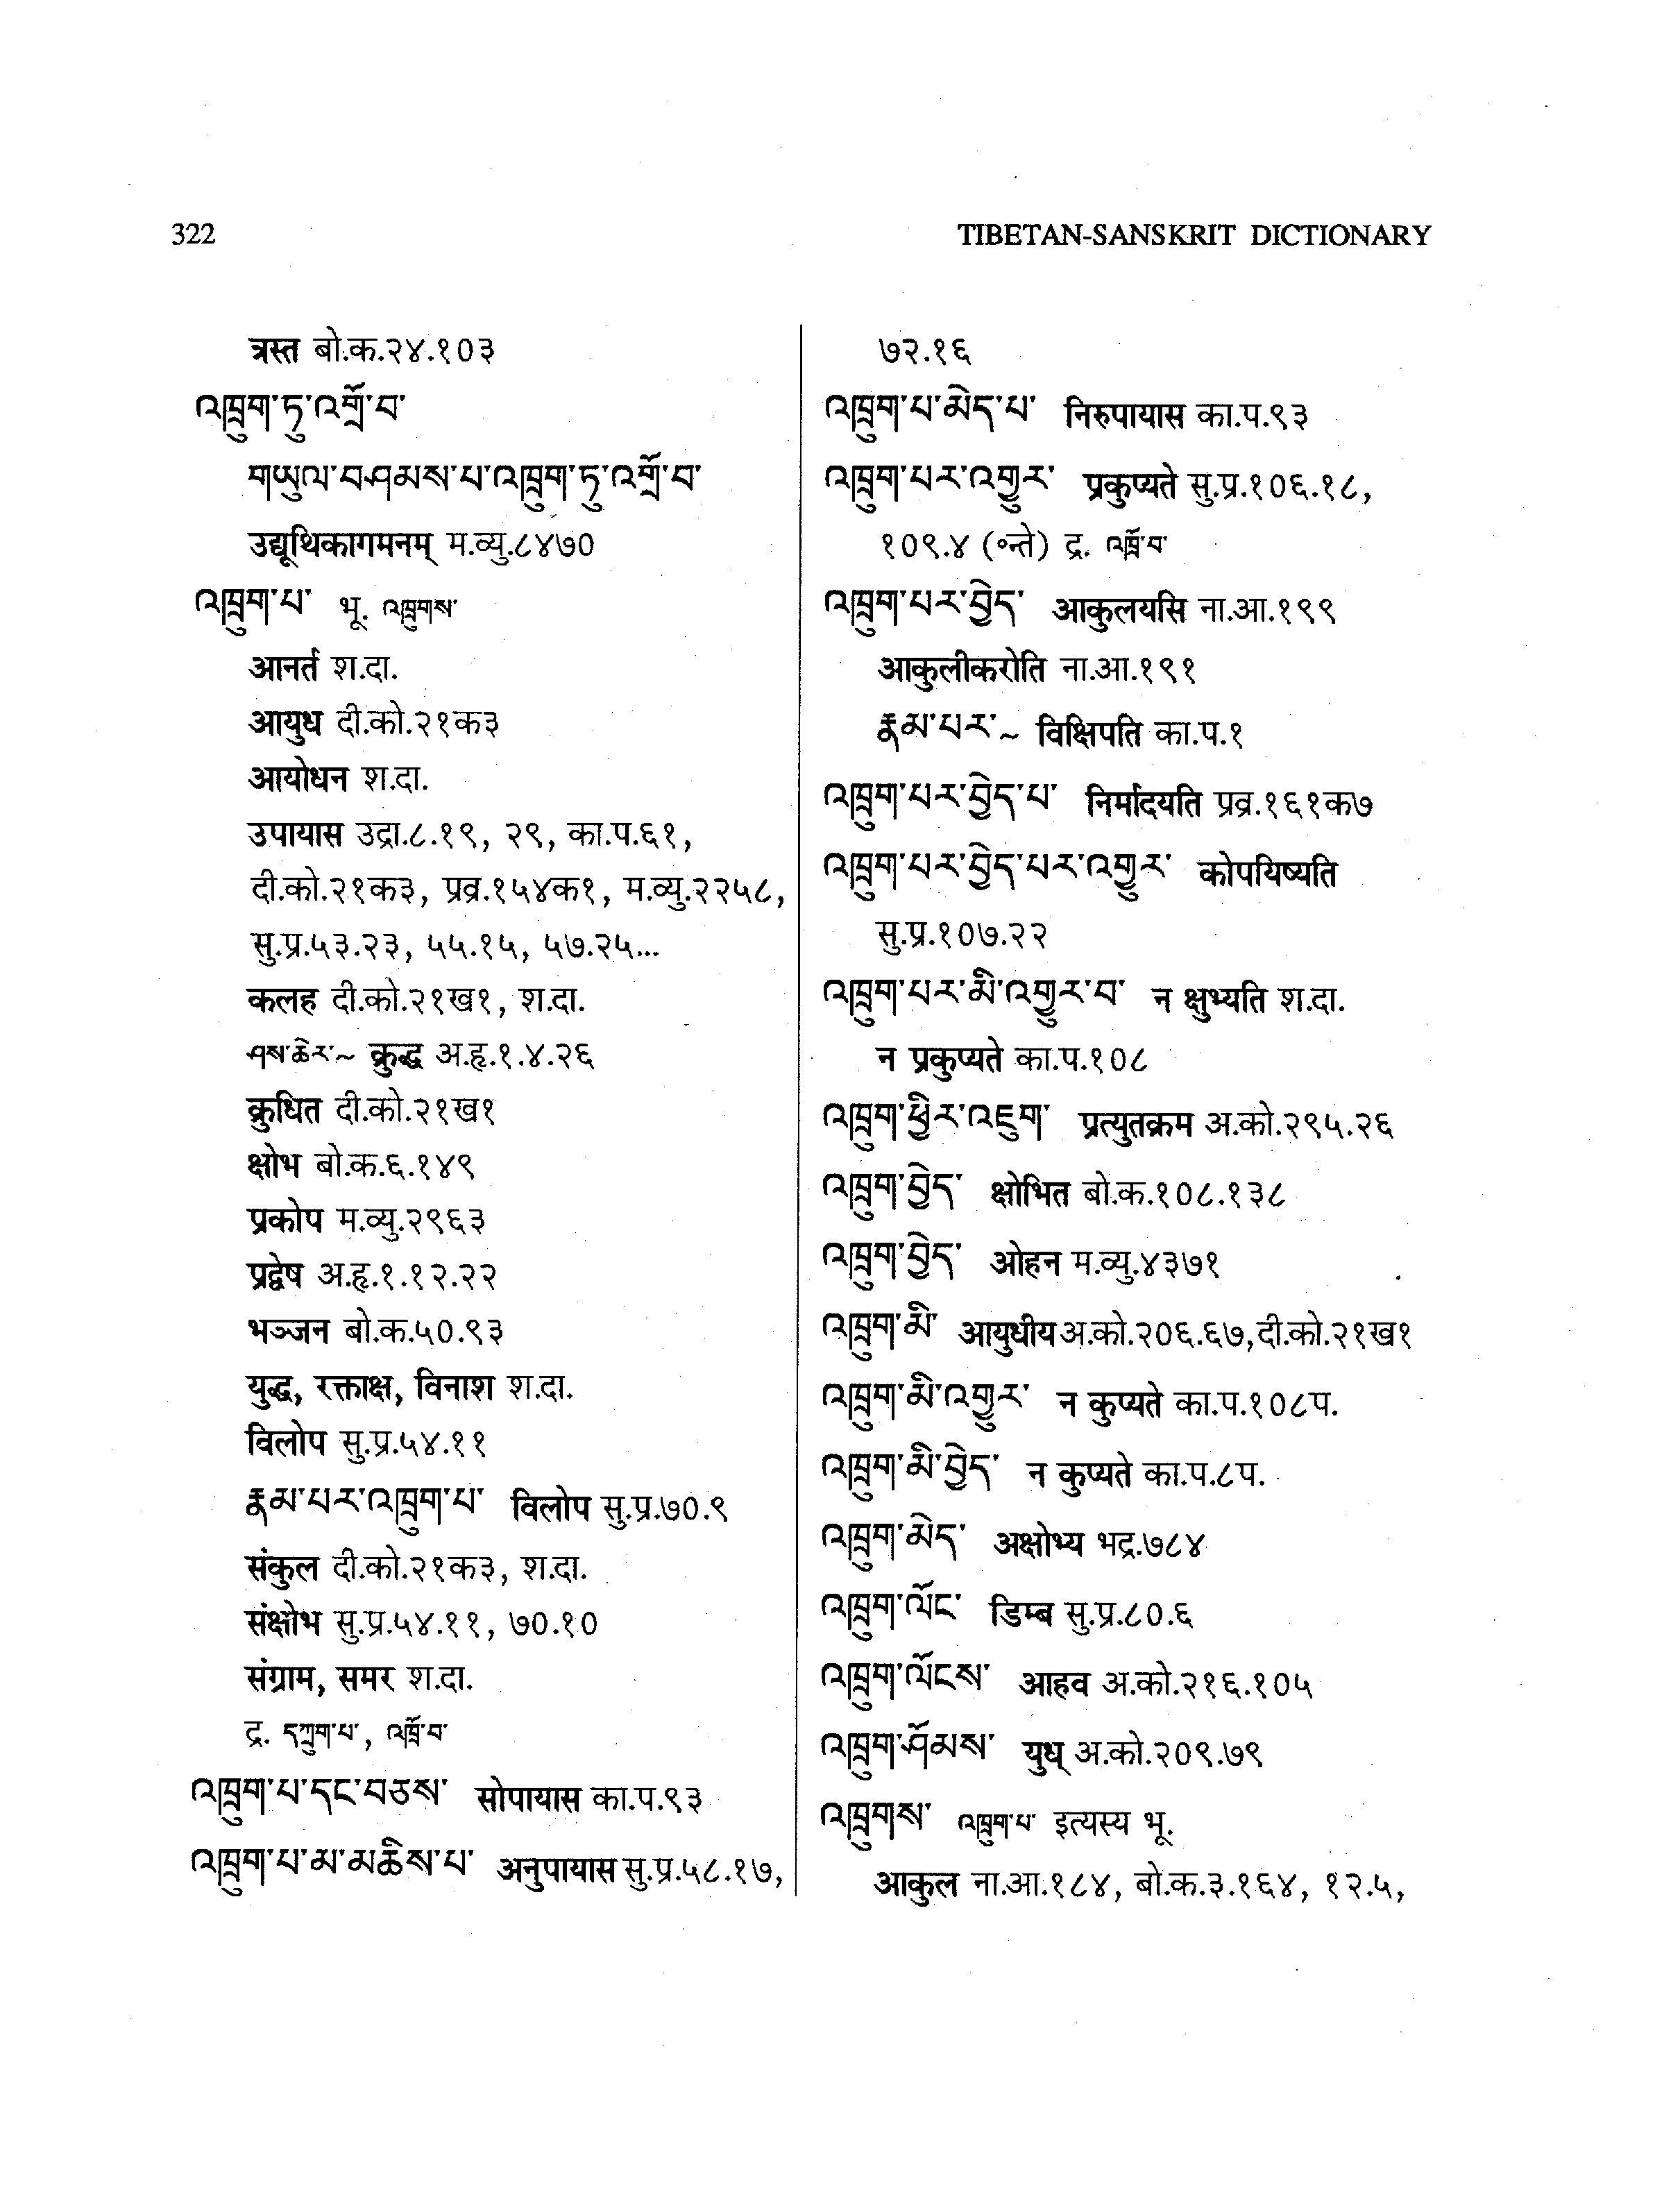 322
TIBETAN-SANSKRIT DICTIONARY
त्रस्त बो.क.२४.१०३
འཁྲུག་ཏུ་འགྲོ་བ་
གཡུལ་བཤམས་པ་འཁྲུག་ཏུ་འགྲོ་བ་
उद्यूथिकागमनम् म.व्यु.८४७०
འཁྲུག་པ་ भू. འཁྲུགས་
आनर्त श.दा.
आयुध दी.को.२१क३
आयोधन श.दा.
उपायास उद्रा.८.१९, २९, का.प.६१,
दी.को.२१क३, प्रव्र.१५४क१, म.व्यु.२२५८,
सु.प्र.५३.२३, ५५.१५, ५७.२५...
कलह दी.को.२१ख१, श.दा.
ཤས་ཆེར་~ क्रुद्ध अ.हृ.१.४.२६
क्रुधित दी.को.२१ख१
क्षोभ बो.क.६.१४९
प्रकोप म.व्यु.२९६३
प्रद्वेष अ.हृ.१.१२.२२
भञ्जन बो.क.५०.९३
युद्ध, रक्ताक्ष, विनाश श.दा.
विलोप सु.प्र.५४.११
རྣམ་པར་འཁྲུག་པ་ विलोप सु.प्र.७०.९
संकुल दी.को.२१क३, श.दा.
संक्षोभ सु.प्र.५४.११, ७०.१०
संग्राम, समर श.दा.
द्र. དཀྲུག་པ་, འཁྲོ་བ་
འཁྲུག་པ་དང་བཅས་ सोपायास का.प.९३
འཁྲུག་པ་མ་མཆིས་པ་ अनुपायास सु.प्र.५८.१७,
७२.१६
འཁྲུག་པ་མེད་པ་ निरुपायास का.प.९३
འཁྲུག་པར་འགྱུར་ प्रकुप्यते सु.प्र.१०६.१८,
१०९.४ (॰न्ते) द्र. འཁྲོ་བ་
འཁྲུག་པར་བྱེད་ आकुलयसि ना.आ.१९९
आकुलीकरोति ना.आ.१९१
རྣམ་པར་~ विक्षिपति का.प.१
འཁྲུག་པར་བྱེད་པ་ निर्मादयति प्रव्र.१६१क७
འཁྲུག་པར་བྱེད་པར་འགྱུར་ कोपयिष्यति
सु.प्र.१०७.२२
འཁྲུག་པར་མི་འགྱུར་བ་ न क्षुभ्यति श.दा.
न प्रकुप्यते का.प.१०८
འཁྲུག་ཕྱིར་འཇུག་ प्रत्युतक्रम अ.को.२९५.२६
འཁྲུག་བྱེད་ क्षोभित बो.क.१०८.१३८
འཁྲུག་བྱེད་ ओहन म.व्यु.४३७१
འཁྲུག་མི་ आयुधीय अ.को.२०६.६७,दी.को.२१ख१
འཁྲུག་མི་འགྱུར་ न कुप्यते का.प.१०८प.
འཁྲུག་མི་བྱེད་ न कुप्यते का.प.८प.
འཁྲུག་མེད་ अक्षोभ्य भद्र.७८४
འཁྲུག་ལོང་ डिम्ब सु.प्र.८०.६
འཁྲུག་ལོངས་ आहव अ.को.२१६.१०५
འཁྲུག་ཤོམས་ युध् अ.को.२०९.७९
འཁྲུགས་ འཁྲུག་པ་ इत्यस्य भू.
आकुल ना.आ.१८४, बो.क.३.१६४, १२.५,